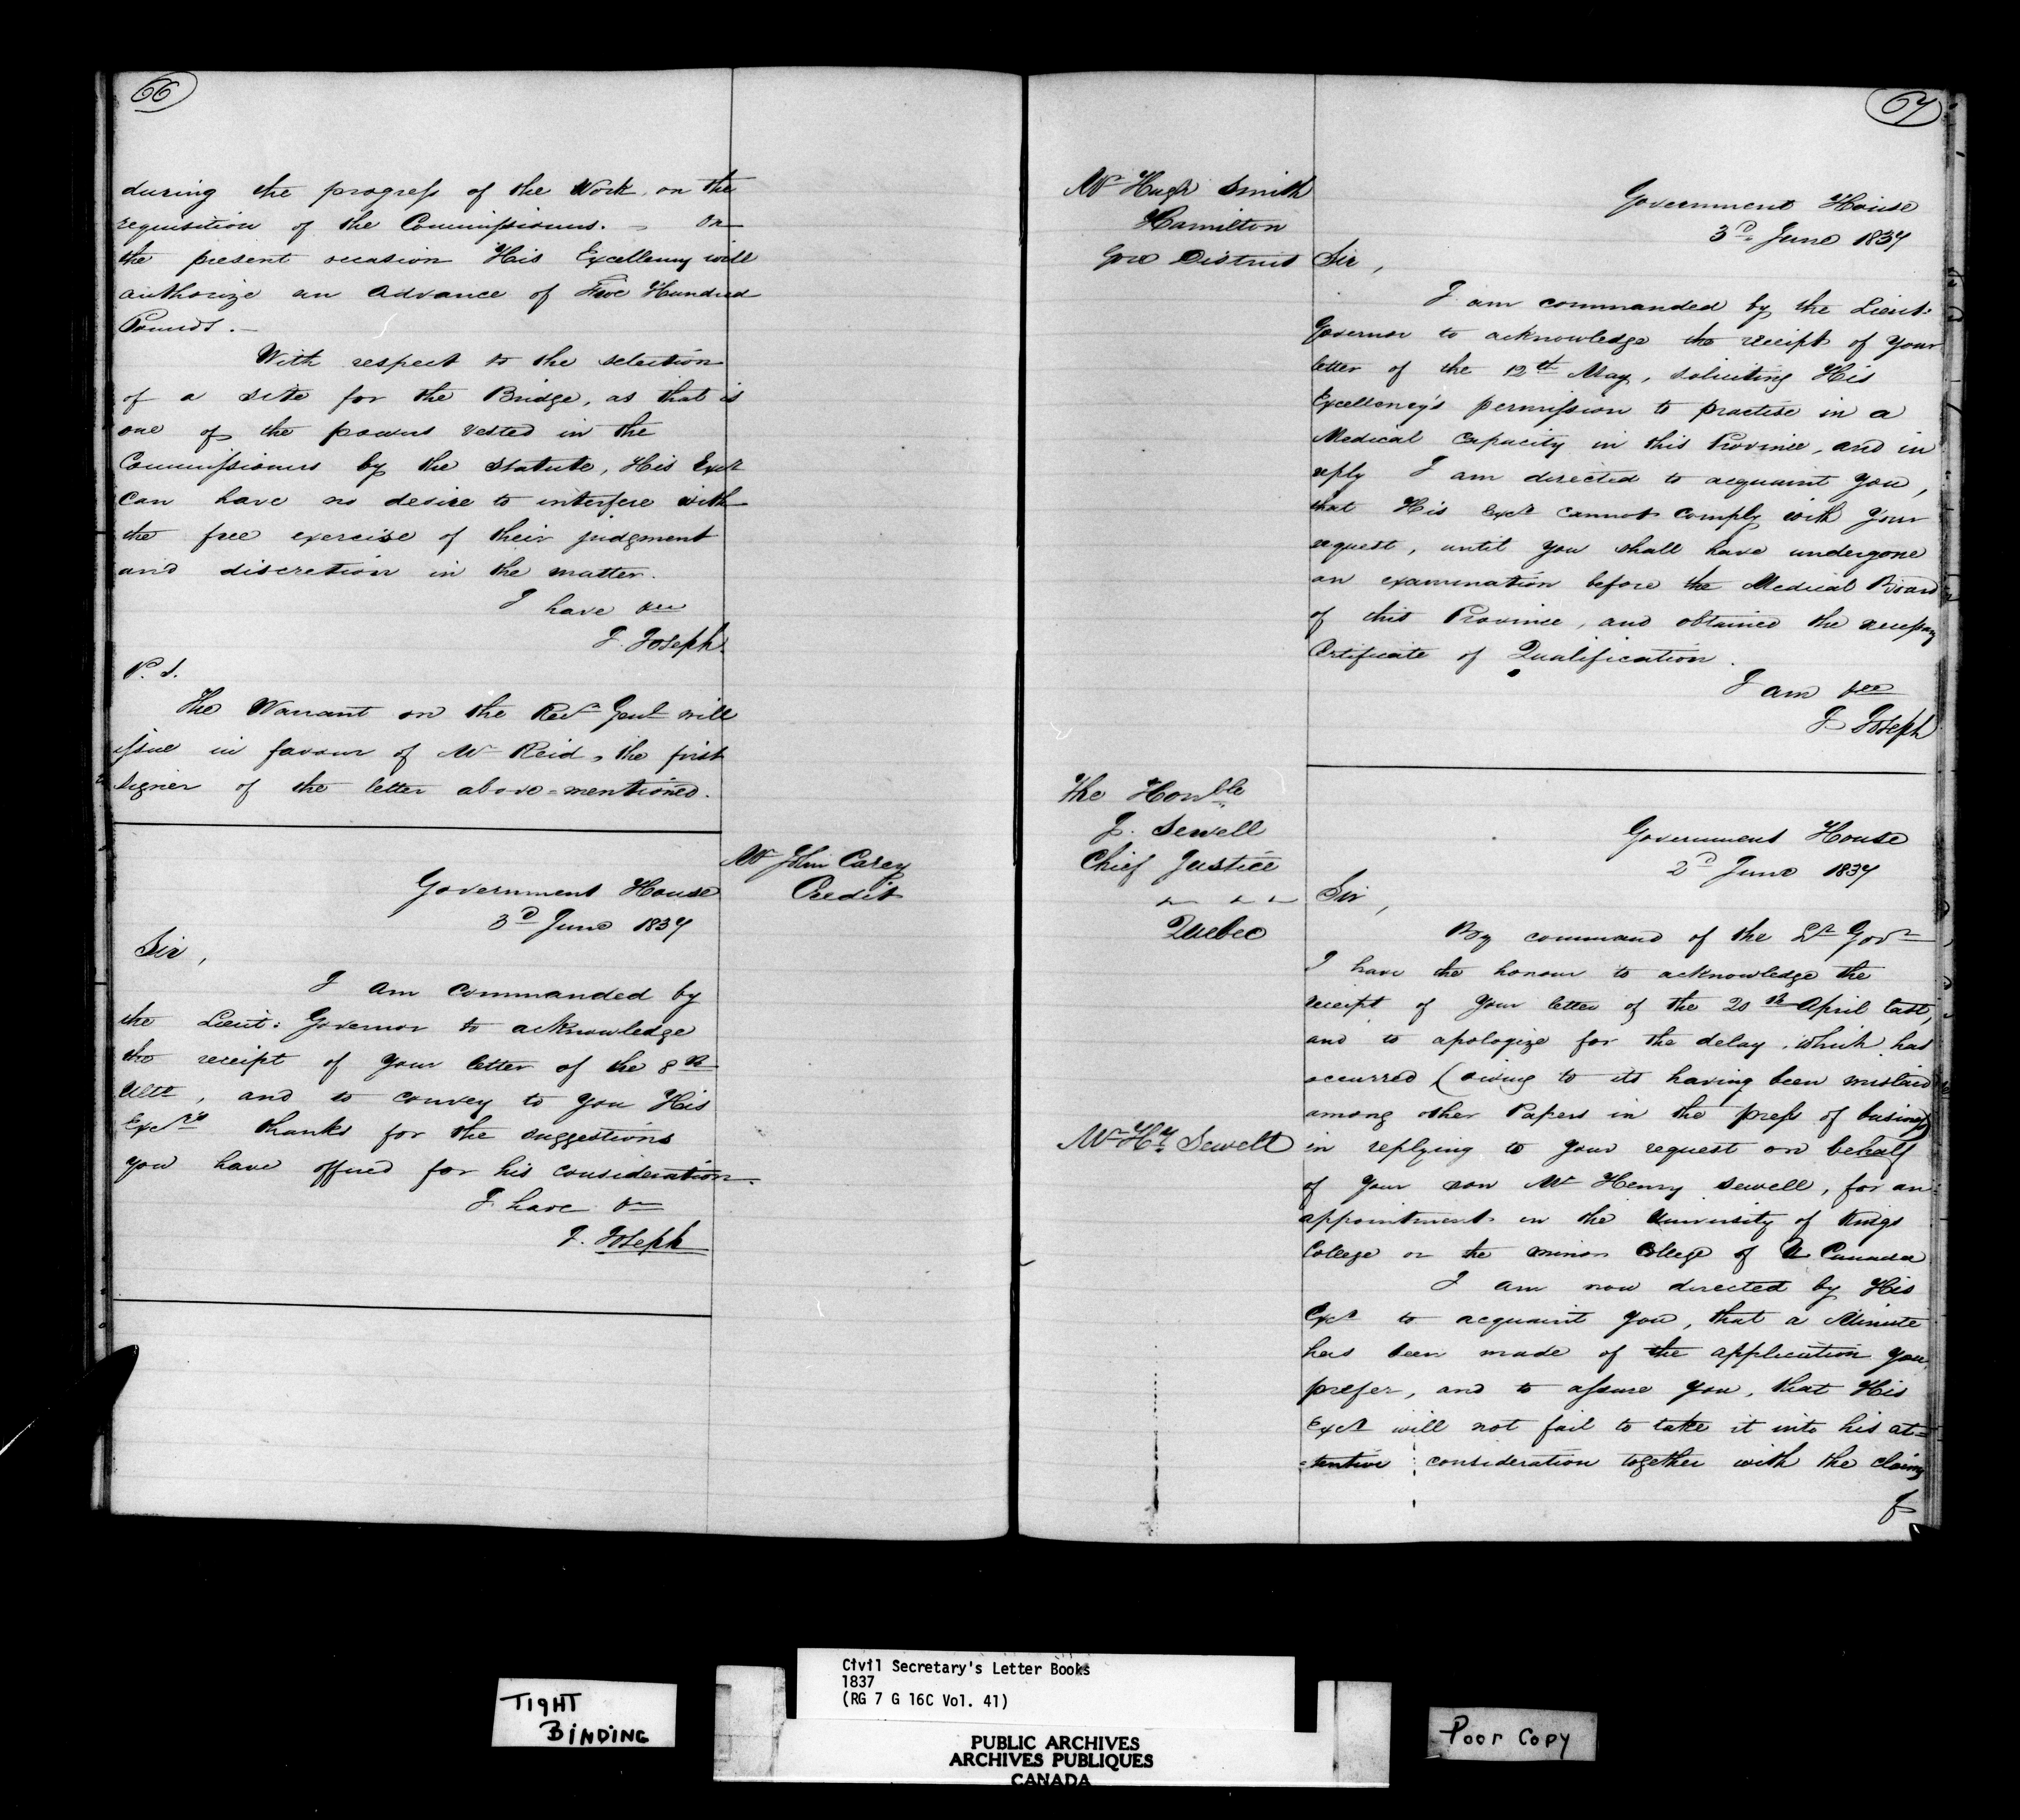 66
during the progress of the Work on the
requisition of the Commissioners. – On
the present occasion His Excellency will
authorize an advance of Five Hundred
Pounds. –
With respect to the selection
of a site for the Bridge, as that is
one of the powers vested in the
Commissioners by the Statute, His Excy
can have no desire to interfere with
the free exercise of their judgment
and discretion in the matter.
I have &c
J. Joseph.
P. S.
The Warrant on the Recr Genl will
issue in favour of Mr Reid, the first
signer of the letter above-mentioned.
Mr John Carey
Credit
Government House
3d June 1837
Sir,
I am commanded by
the Lieut: Governor to acknowledge
the receipt of your letter of the 8th
Ulto, and to convey to you His
Excy's thanks for the suggestions
you have offered for his consideration.
I have &c
J. Joseph
67
Mr Hugh Smith
Hamilton
Gore District
Government House
3d June 1837
Sir,
I am commanded by the Lieut.
Governor to acknowledge the receipt of your
letter of the 12th May, soliciting His
Excellency's permission to practise in a
Medical Capacity in this Province, and in
reply I am directed to acquaint you,
that His Excy cannot comply with your
request, until you shall have undergone
an examination before the Medical Board
of this Province, and obtained the necessary
Certificate of Qualification.
I am &c
J Joseph
The Honble
J. Sewell
Chief Justice
Quebec
Government House
2d June 1837
Sir,
By command of the Lt Govr
I have the honour to acknowledge the
receipt of your letter of the 20th April last,
and to apologize for the delay which has
occurred (owing to its having been mislaid
among other Papers in the press of business)
Mr Hy Sewell
in replying to your request on behalf
of your son Mr Henry Sewell, for an
appointment in the University of Kings
College or the minor College of U Canada
I am now directed by His
Excy to acquaint you, that a Minute
has been made of the application you
prefer, and to assure you, that His
Excy will not fail to take it into his at=
=tentive consideration together with the claims
of
TIGHT
BINDING
Civil Secretary's Letter Books
1837
(RG 7 G 16C Vol. 41)
PUBLIC ARCHIVES
ARCHIVES PUBLIQUES
CANADA
Poor Copy